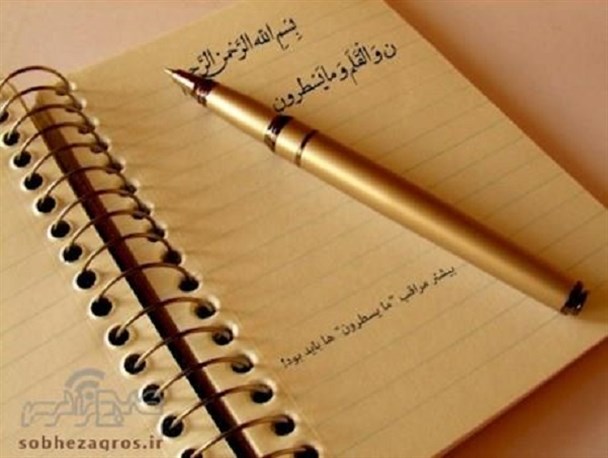 بِسْمِ اللهِ الرَّحْمنِ الرَّحي
ن وَ الْقَلَمِ وَ ما يَسْطُرون
بیشتر مراقب "ما یسطرون" ها باید بود!
sobhezagros.ir